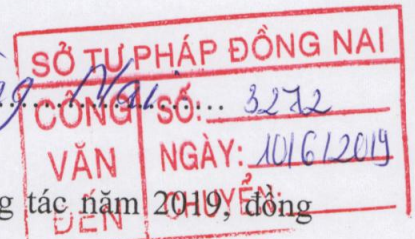 SỞ TƯ PHÁP ĐỒNG NAI
Nai
CÔNG VĂN ĐẾN
SỐ: 3272
NGÀY: 10/6/2019
CHUYỂN:
g tác năm 2019, đồng